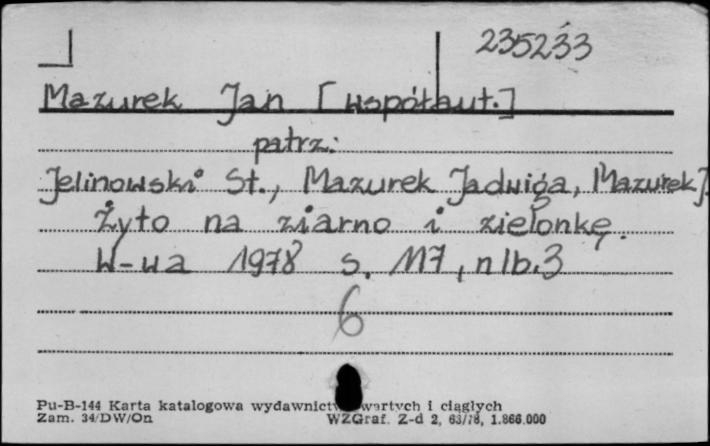 235233
Mazurek Jan [współaut.]
patrz:
Jelinowski St., Mazurek Jadwiga, Mazurek J.
Żyto na ziarno i zielonkę.
W-wa 1978 s. 117, nlb. 3
6
Pu-B-144 Karta katalogowa wydawnictw zwartych i ciągłych
Zam. 34/DW/On WZGraf. Z-d 2, 63/78, 1.866.000